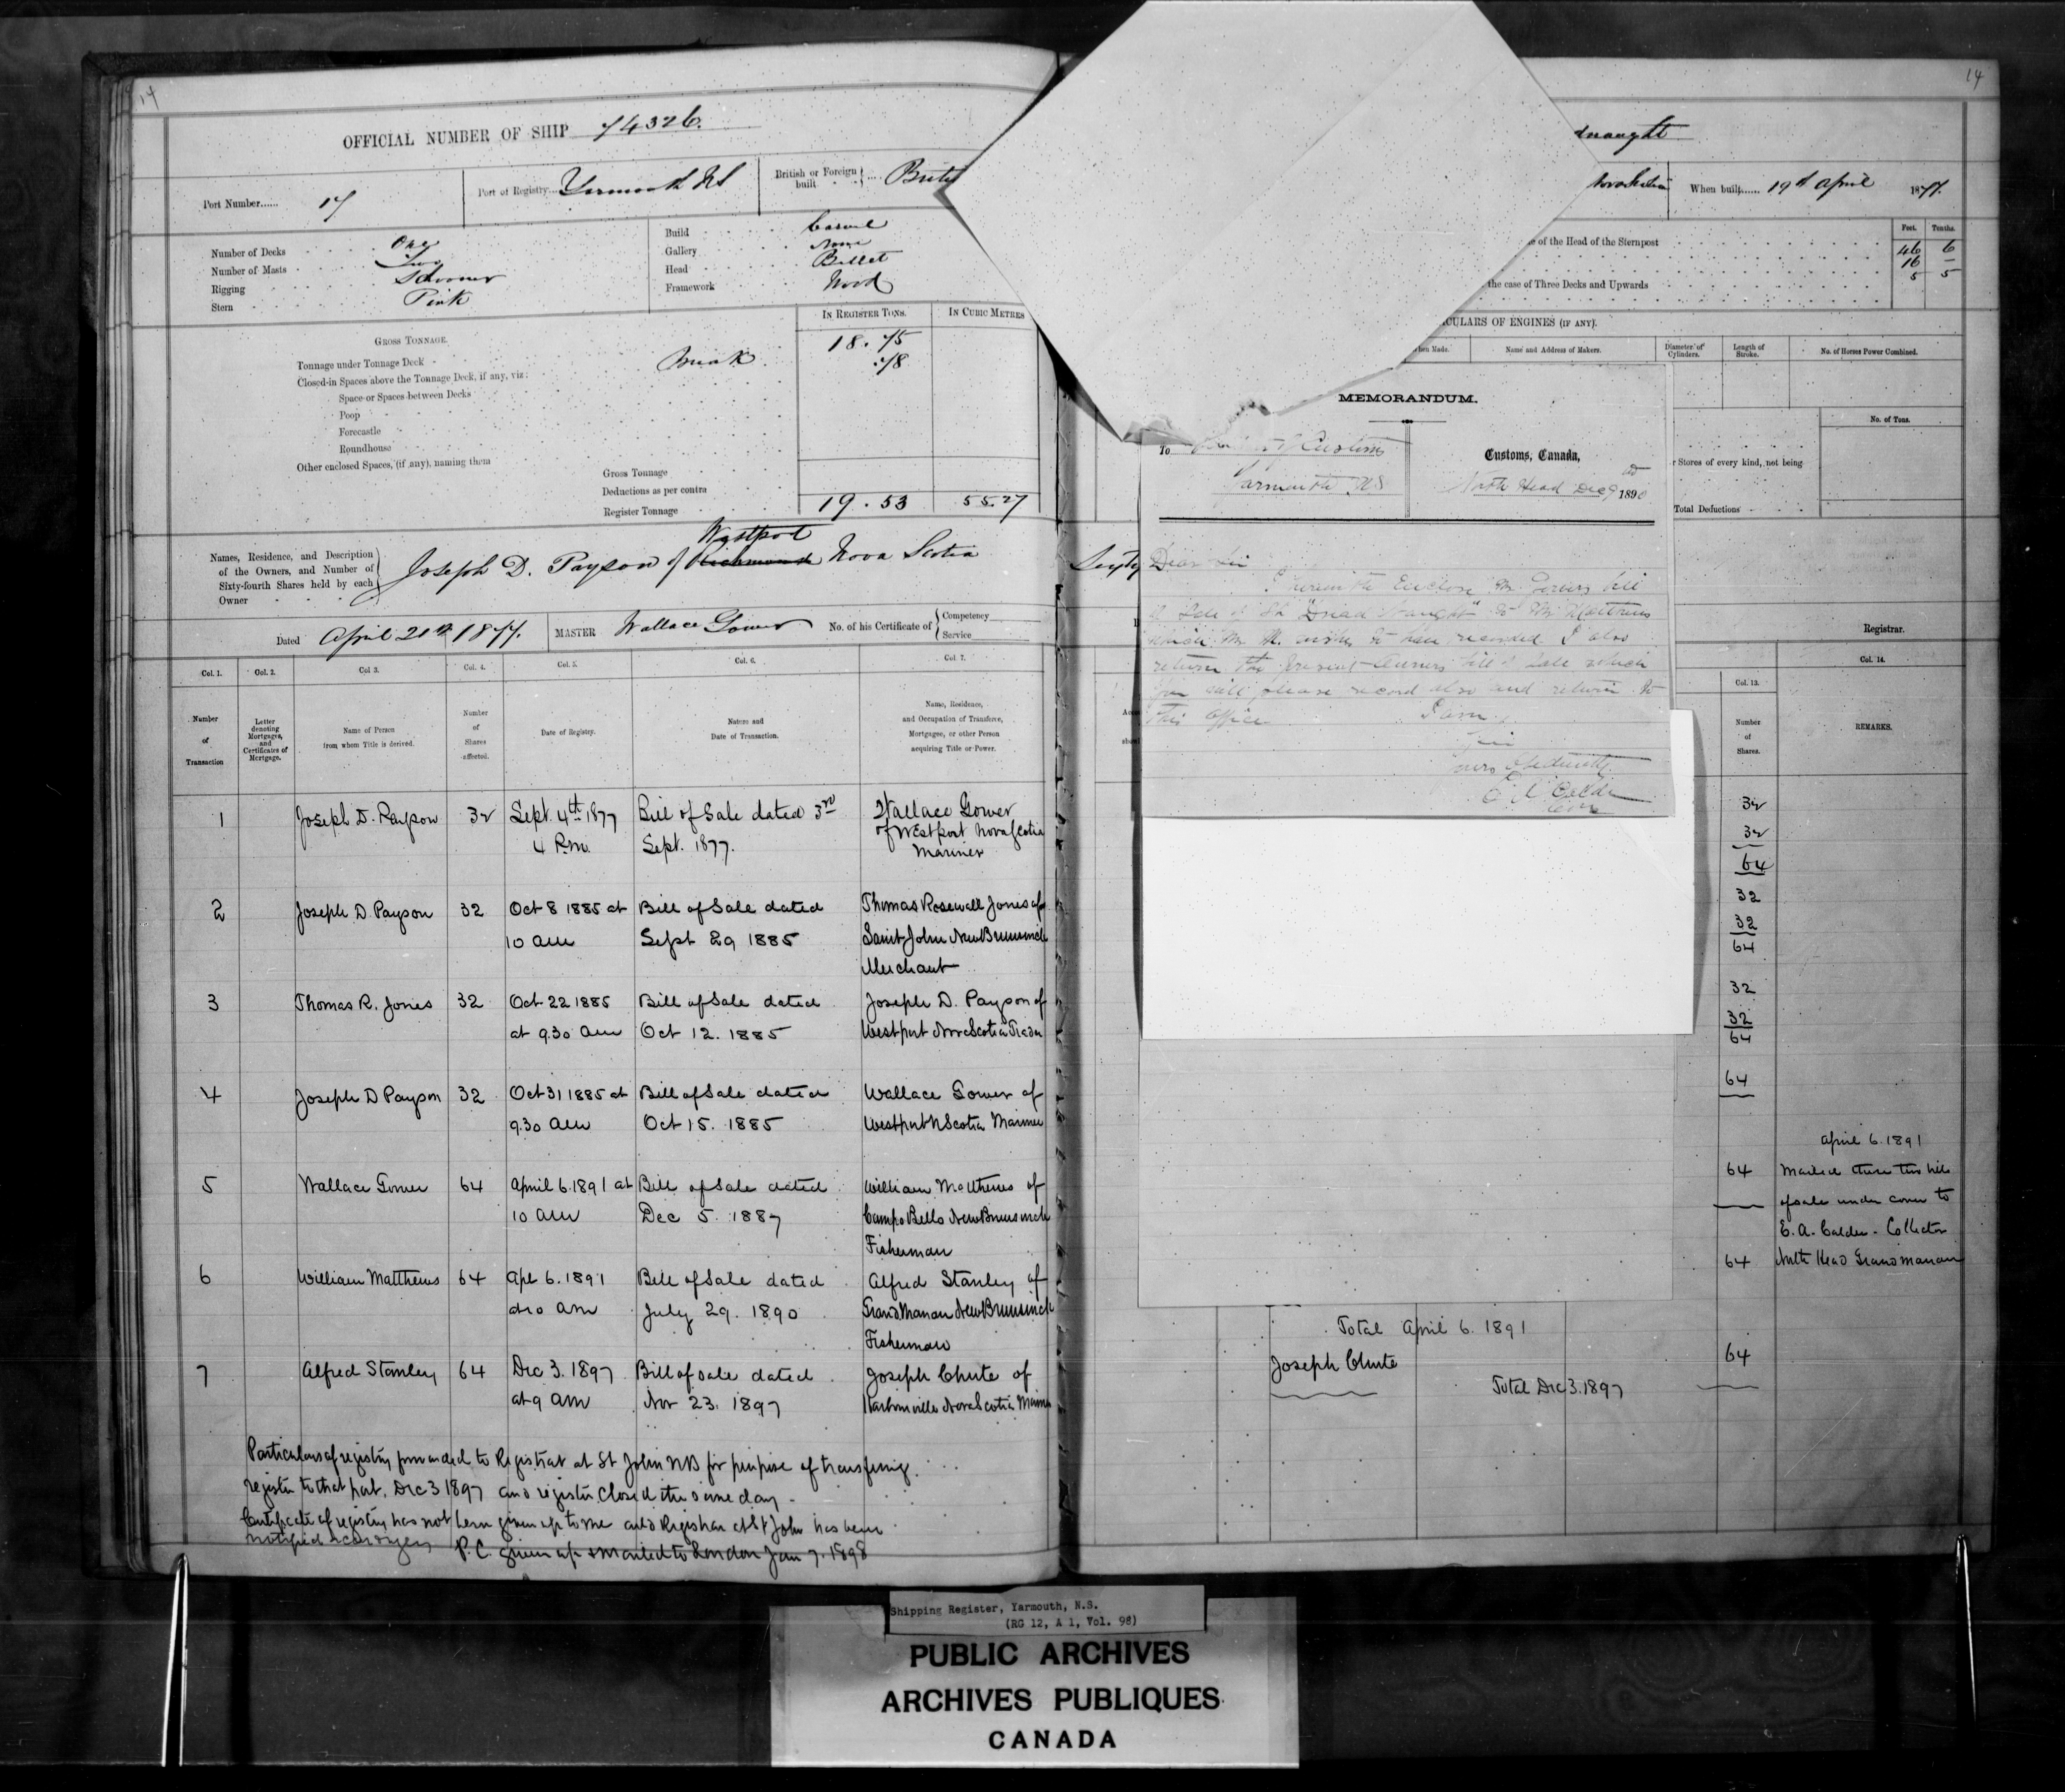 14
OFFICIAL NUMBER OF SHIP 74326.
Port Number...... 17
Port of Registry... Yarmouth NS
British or Foreign built
Number of Decks One
Number of Masts Two
Rigging Schooner
Stern Pink
Build Carvel
Gallery None
Head Billet
Framework Wood
GROSS TONNAGE.
IN REGISTER TONS.
IN CUBIC METRES
Tonnage under Tonnage Deck 18.75
Closed-in Spaces above the Tonnage Deck, if any, viz: Break .78
Space or Spaces between Decks
Poop
Forecastle
Roundhouse
Other enclosed Spaces, (if any), naming them
Gross Tonnage
Deductions as per contra
Register Tonnage 19.53 55.27
Names, Residence, and Description of the Owners, and Number of Sixty-fourth Shares held by each Owner
Westport
Joseph D. Payson of Richmond Nova Scotia
Dated April 21st 1877.
MASTER Wallace Gower
No. of his Certificate of Competency Service
Col. 1. Col. 2. Col 3. Col. 4. Col. 5. Col. 6. Col. 7.
Number of Transaction
Letter denoting Mortgages, and Certificates of Mortgage.
Name of Person from whom Title is derived.
Number of Shares affected.
Date of Registry.
Nature and Date of Transaction.
Name, Residence, and Occupation of Transferee, Mortgagee, or other Person acquiring Title or Power.
1 Joseph D. Payson 32 Sept. 4th 1877 Bill of Sale dated 3rd Wallace Gower
4 P.m. Sept. 1877. of Westport Nova Scotia
Mariner
2 Joseph D. Payson 32 Oct 8 1885 at Bill of Sale dated Thomas Rosewall Jones of
10 am Sept 29 1885 Saint John New Brunswick
Merchant
3 Thomas R. Jones 32 Oct 22 1885 Bill of Sale dated Joseph D. Payson of
at 9.30 am Oct 12. 1885 Westport Nova Scotia Trader
4 Joseph D Payson 32 Oct 31 1885 at Bill of Sale dated Wallace Gower of
9.30 am Oct 15. 1885 Westport N Scotia Mariner
5 Wallace Gower 64 April 6. 1891 at Bill of Sale dated William Matthews of
10 am Dec 5. 1887 Campo Bello New Brunswick
Fisherman
6 William Matthews 64 Apl 6. 1891 Bill of Sale dated Alfred Stanley of
at 10 am July 29. 1890 Grand Manan New Brunswick
Fisherman
7 Alfred Stanley 64 Dec 3. 1897 Bill of sale dated Joseph Chute of
at 9 am Nov 23. 1897 Harbourville Nova Scotia
Particulars of registry forwarded to Registrar at St John NB for purpose of transferring
register to that port. Dec 3 1897 and register closed the same day -
Certificate of registry has not been given up to me and Registrar at St John has been
notified accordingly P.C. given up & mailed to London Jan 7. 1898
14
dnaught
Nova Scotia
When built...... 19th April 1877.
Feet. Tenths.
e of the Head of the Sternpost 46 6
16 -
5 5
the case of Three Decks and Upwards
CULARS OF ENGINES (IF ANY).
hen Made.
Name and Address of Makers.
Diameter of Cylinders.
Length of Stroke.
No. of Horses Power Combined.
No. of Tons.
r Stores of every kind, not being
Total Deductions
Registrar.
MEMORANDUM.
To
of Customs
Yarmouth NS
Customs, Canada,
North Head Dec 9 1890
Dear Sir
I herewith Enclose Mr Gowers bill
of Sale of Sh "Dread Naught" to Mr Matthews
which Mr M. wishes to have recorded I also
return the present owners bill of Sale which
you will please record also and return to
this office
Yours Obediently
E A Calder
Col. 13.
Col. 14.
Number of Shares.
REMARKS.
32
32
64
32
32
64
32
32
64
64
April 6. 1891
64 Mailed these two bills
of sale under cover to
E. A. Calder - Collector
64 North Head Grand Manan
Total April 6. 1891
Joseph Chute 64
Total Dec 3. 1897
Shipping Register, Yarmouth, N.S.
(RG 12, A 1, Vol. 98)
PUBLIC ARCHIVES
ARCHIVES PUBLIQUES
CANADA